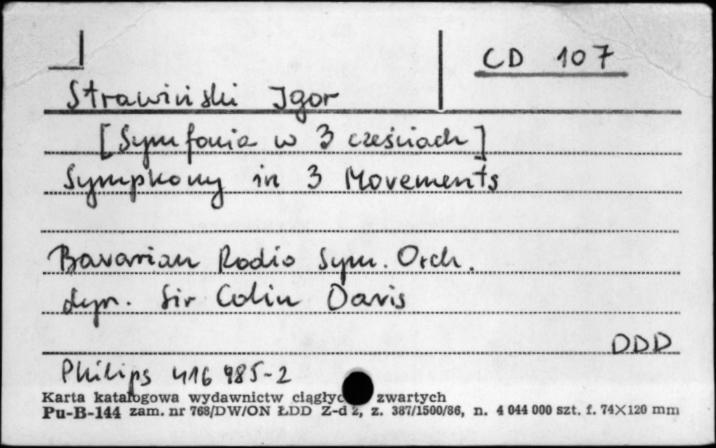 CD 107
Strawiński Igor
[Symfonia w 3 częściach]
Symphony in 3 Movements
Bavarian Radio Sym. Orch.
dyr. Sir Colin Davis
DDD
Philips 416 985-2
Karta katalogowa wydawnictw ciągłyc zwartych
Pu-B-144 zam. nr 768/DW/ON ŁDD Z-d 2, z. 387/1500/86, n. 4 044 000 szt. f. 74×120 mm